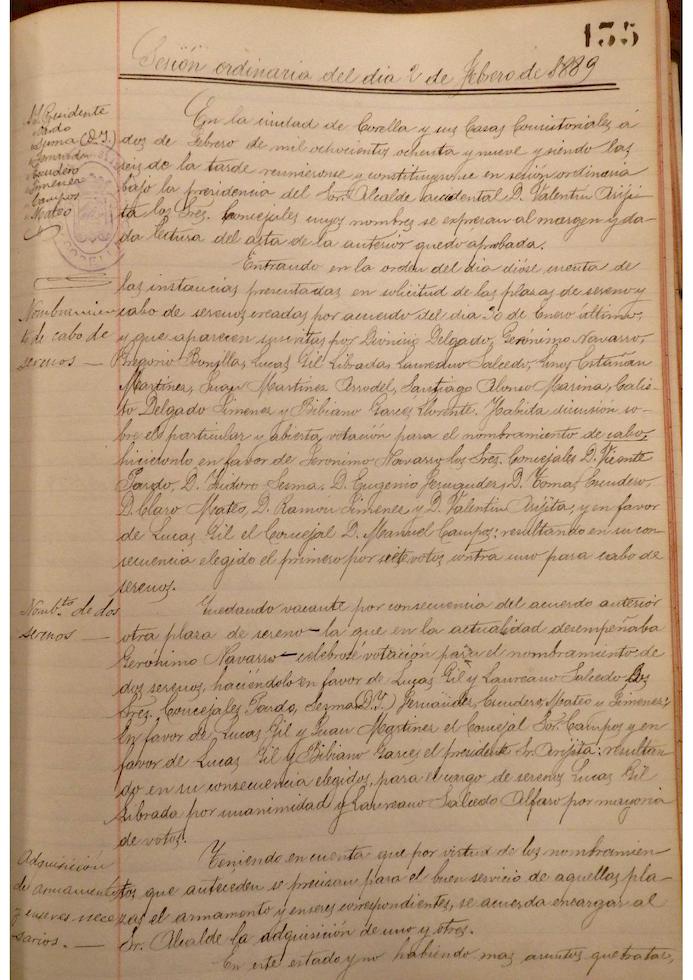 135
Sesión ordinaria del dia 2 de Febrero de 1889
Sr. Presidente
Pardo
Sesma (D. I.)
Fernandez
Escudero
Jimenez
Campos
Mateo
En la ciudad de Corella y sus Casas Consistoriales á
dos de Febrero de mil ochocientos ochenta y nueve y siendo las
seis de la tarde reunieronse y constituyeronse en sesión ordinaria
bajo la presidencia del Sor. Alcalde accidental D. Valentin Arigi-
ta los Sres. Concejales cuyos nombres se expresan al margen y da-
da lectura del acta de la anterior quedo aprobada.
Entrando en la orden del dia dióse cuenta de
las instancias presentadas en solicitud de las plazas de sereno y
Nombramien-
to de cabo de
serenos —
cabo de serenos creadas por acuerdo del dia 30 de Enero último,
y que aparecen suscritas por Dionisio Delgado, Gerónimo Navarro,
Gregorio Bonilla, Lucas Gil Librada, Laureano Salcedo, Linos Catañan
Martinez, Juan Martinez Arrodel, Santiago Alonso Marina, Calis-
to Delgado Jimenez y Bibiano Garcés Llorente. Habida discusión so-
bre el particular y abierta votación para el nombramiento de cabo,
hicieronlo en favor de Jeronimo Navarro los Sres. Concejales D. Vicente
Pardo, D. Isidoro Sesma, D. Eugenio Fernandez, D. Tomas Escudero,
D. Claro Mateo, D. Ramon Jimenez y D. Valentin Arigita, y en favor
de Lucas Gil el Concejal D. Manuel Campos: resultando en su con-
secuencia elegido el primero por siete votos contra uno para cabo de
serenos.
Nombto. de dos
serenos —
Quedando vacante por consecuencia del acuerdo anterior
otra plaza de sereno — la que en la actualidad desempeñaba
Gerónimo Navarro — celebrose votación para el nombramiento de
dos serenos, haciéndolo en favor de Lucas Gil y Laureano Salcedo los
Sres. Concejales Pardo, Sesma (D. I.) Fernandez, Escudero, Mateo y Jimenez:
En favor de Lucas Gil y Juan Martinez el Concejal Sor. Campos y en
favor de Lucas Gil y Bibiano Garces el presidente Sr. Arigita: resultan
do en su consecuencia elegidos, para el cargo de serenos Lucas Gil
Librada por unanimidad y Laureano Salcedo Alfaro por mayoria
de votos.
Adquisición
de armamento
y enseres nece
sarios. —
Teniendo en cuenta que por virtud de los nombramien
tos que anteceden se precisan para el buen servicio de aquellas pla-
zas el armamento y enseres correspondientes, se acuerda encargar al
Sr. Alcalde la adquisición de uno y otros.
En este estado y no habiendo mas asuntos que tratar,